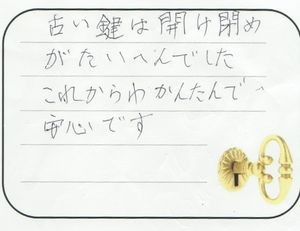 古い鍵は開け閉め
がたいへんでした
これからわかんたんで
安心です